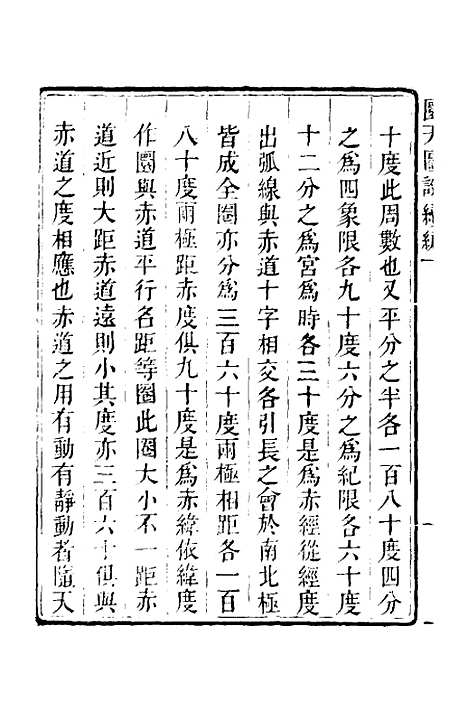 十度此周數也又平分之半各一百八十度四分
之為四象限各九十度六分之為紀限各六十度
十二分之為宮為時各三十度是為赤經從經度
出弧線與赤道十字相交各引長之會於南北極
皆成全圈亦分為三百六十度兩極相距各一百
八十度兩極距赤度俱九十度是為赤緯依緯度
作圈與赤道平行名距等圈此圈大小不一距赤
道近則大距赤道遠則小其度亦三百六十俱與
赤道之度相應也赤道之用有動有靜動者隨天